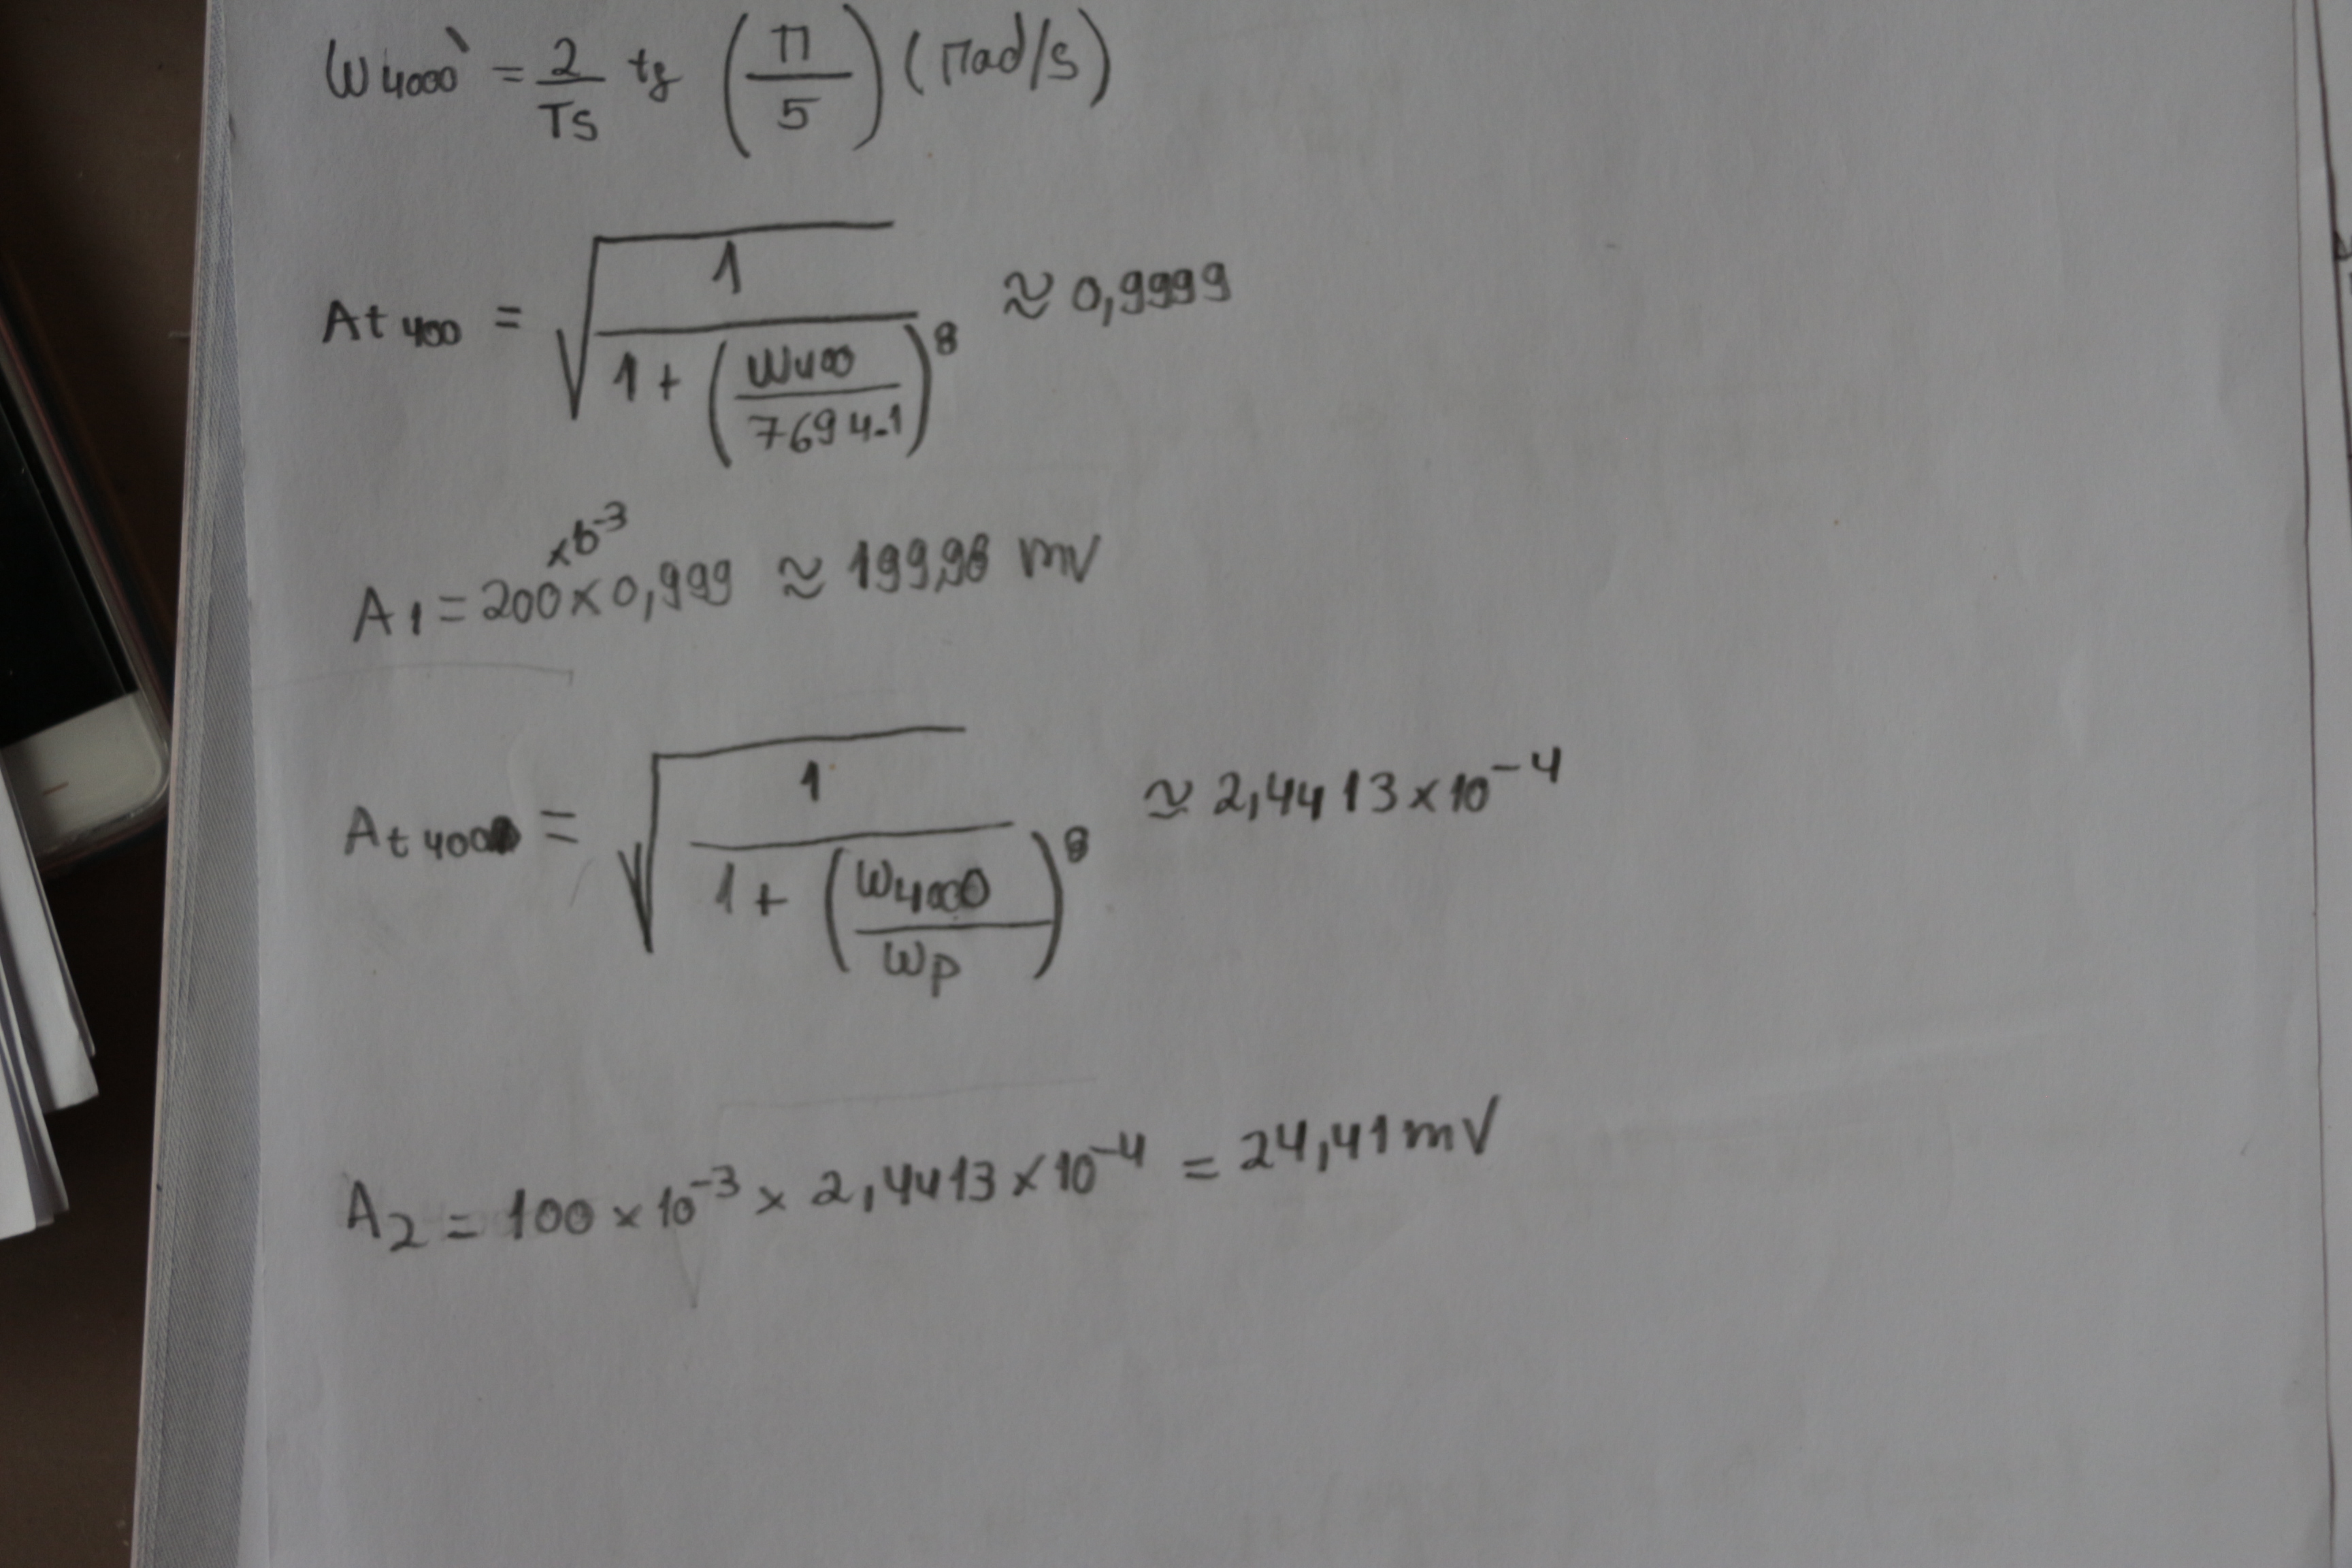 W4000` = 2/Ts tg (π/5) (rad/s)
At 400 = √(1/(1 + (W400/7694.1)^8)) ≈ 0,9999
A1 = 200 x10^-3 x 0,999 ≈ 199,98 mV
At 4000 = √(1/(1 + (W4000/Wp)^8)) ≈ 2,4413 x 10^-4
A2 = 100 x 10^-3 x 2,4413 x 10^-4 = 24,41 mV